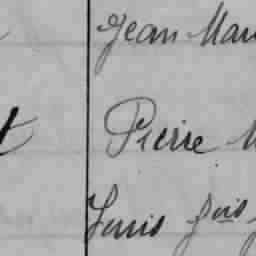 Jean Mar
t Pierre M
Louis fois